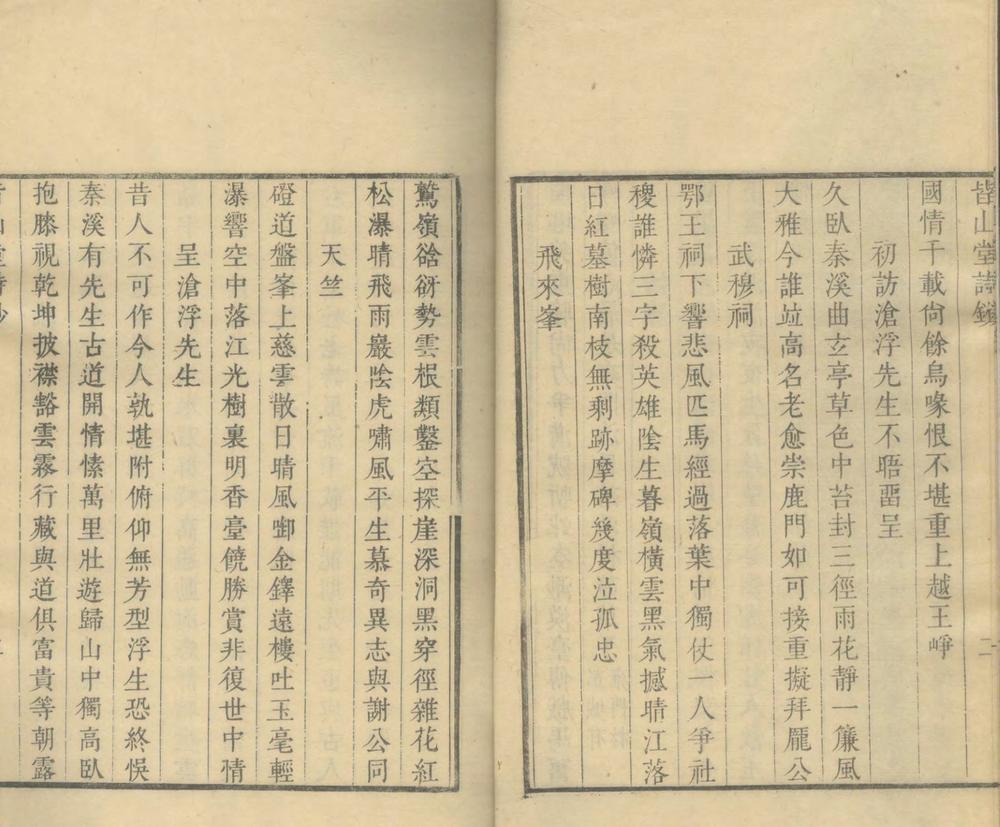 皆山堂詩鈔
二
國情千載尙餘烏喙恨不堪重上越王崢
初訪滄浮先生不晤畱呈
久臥秦溪曲玄亭草色中苔封三徑雨花靜一簾風
大雅今誰竝高名老愈崇鹿門如可接重擬拜龎公
武穆祠
鄂王祠下響悲風匹馬經過落葉中獨仗一人爭社
稷誰憐三字殺英雄陰生暮嶺橫雲黑氣撼晴江落
日紅墓樹南枝無剩跡摩碑幾度泣孤忠
飛來峯
鷲嶺谽谺勢雲根類鑿空探崖深洞黑穿徑雜花紅
松瀑晴飛雨巖陰虎嘯風平生慕奇異志與謝公同
天竺
磴道盤峯上慈雲散日晴風啣金鐸遠樓吐玉毫輕
瀑響空中落江光樹裏明香臺饒勝賞非復世中情
呈滄浮先生
昔人不可作今人孰堪附俯仰無芳型浮生恐終悞
秦溪有先生古道開情愫萬里壯遊歸山中獨高臥
抱膝視乾坤披襟豁雲霧行藏與道俱富貴等朝露